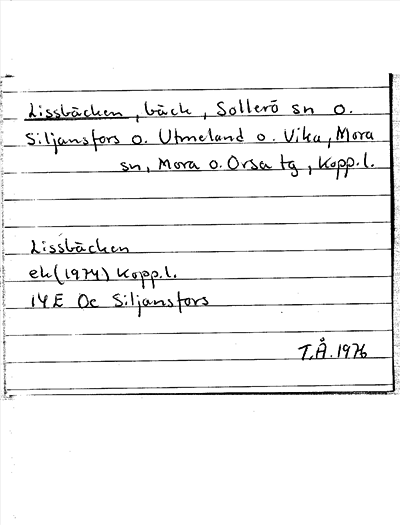 Lissbäcken, bäck, Sollerö sn o.
Siljansfors o. Utmeland o. Vika, Mora
sn, Mora o. Orsa tg, Kopp. l.
Lissbäcken
ek (1974) Kopp. l.
14E Oc Siljansfors
T.Å. 1976